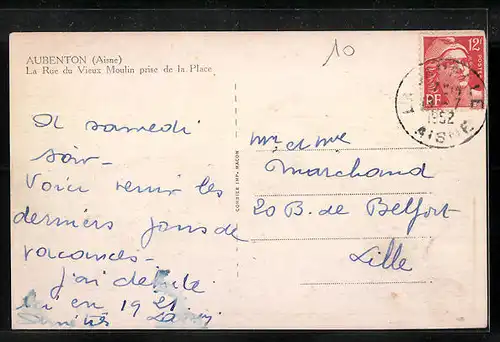 AUBENTON (Aisne)
La Rue du Vieux Moulin prise de la Place
10
12F
POSTES
RF
1952
AISNE
A samedi
soir -
Voici venir les
derniers jours de
vacances -
J'ai débuté
ici en 1921
COMBIER IMP. MACON
Mr et Mme
Marchand
20 B. de Belfort
Lille